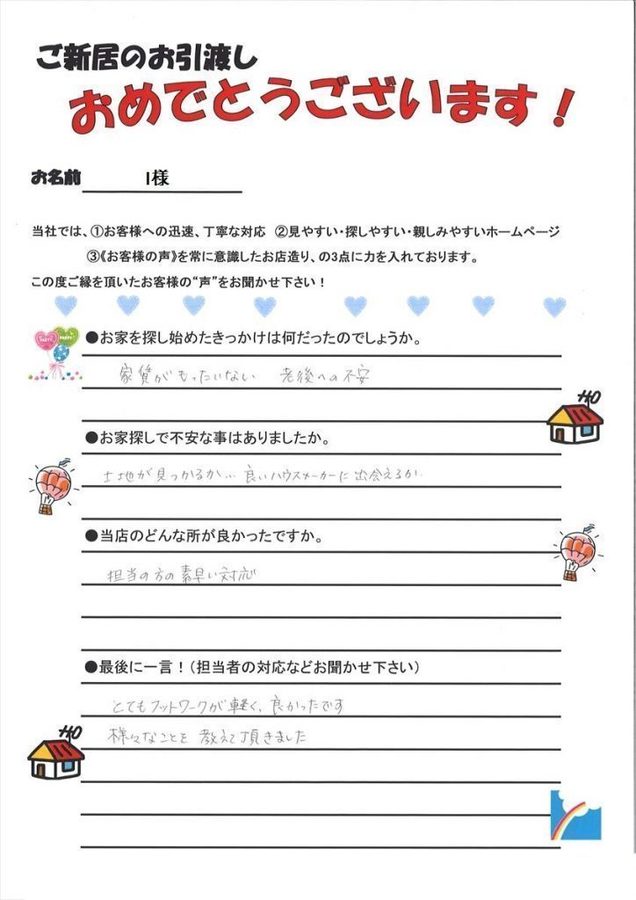 ご新居のお引渡し
おめでとうございます!
お名前 I様
当社では、①お客様への迅速、丁寧な対応 ②見やすい・探しやすい・親しみやすいホームページ
③《お客様の声》を常に意識したお店造り、の3点に力を入れております。
この度ご縁を頂いたお客様の“声”をお聞かせ下さい!
●お家を探し始めたきっかけは何だったのでしょうか。
家賃がもったいない 老後への不安
●お家探しで不安な事はありましたか。
土地が見つかるか… 良いハウスメーカーに出会えるか
●当店のどんな所が良かったですか。
担当の方の素早い対応
●最後に一言!(担当者の対応などお聞かせ下さい)
とてもフットワークが軽く、良かったです
様々なことを教えて頂きました